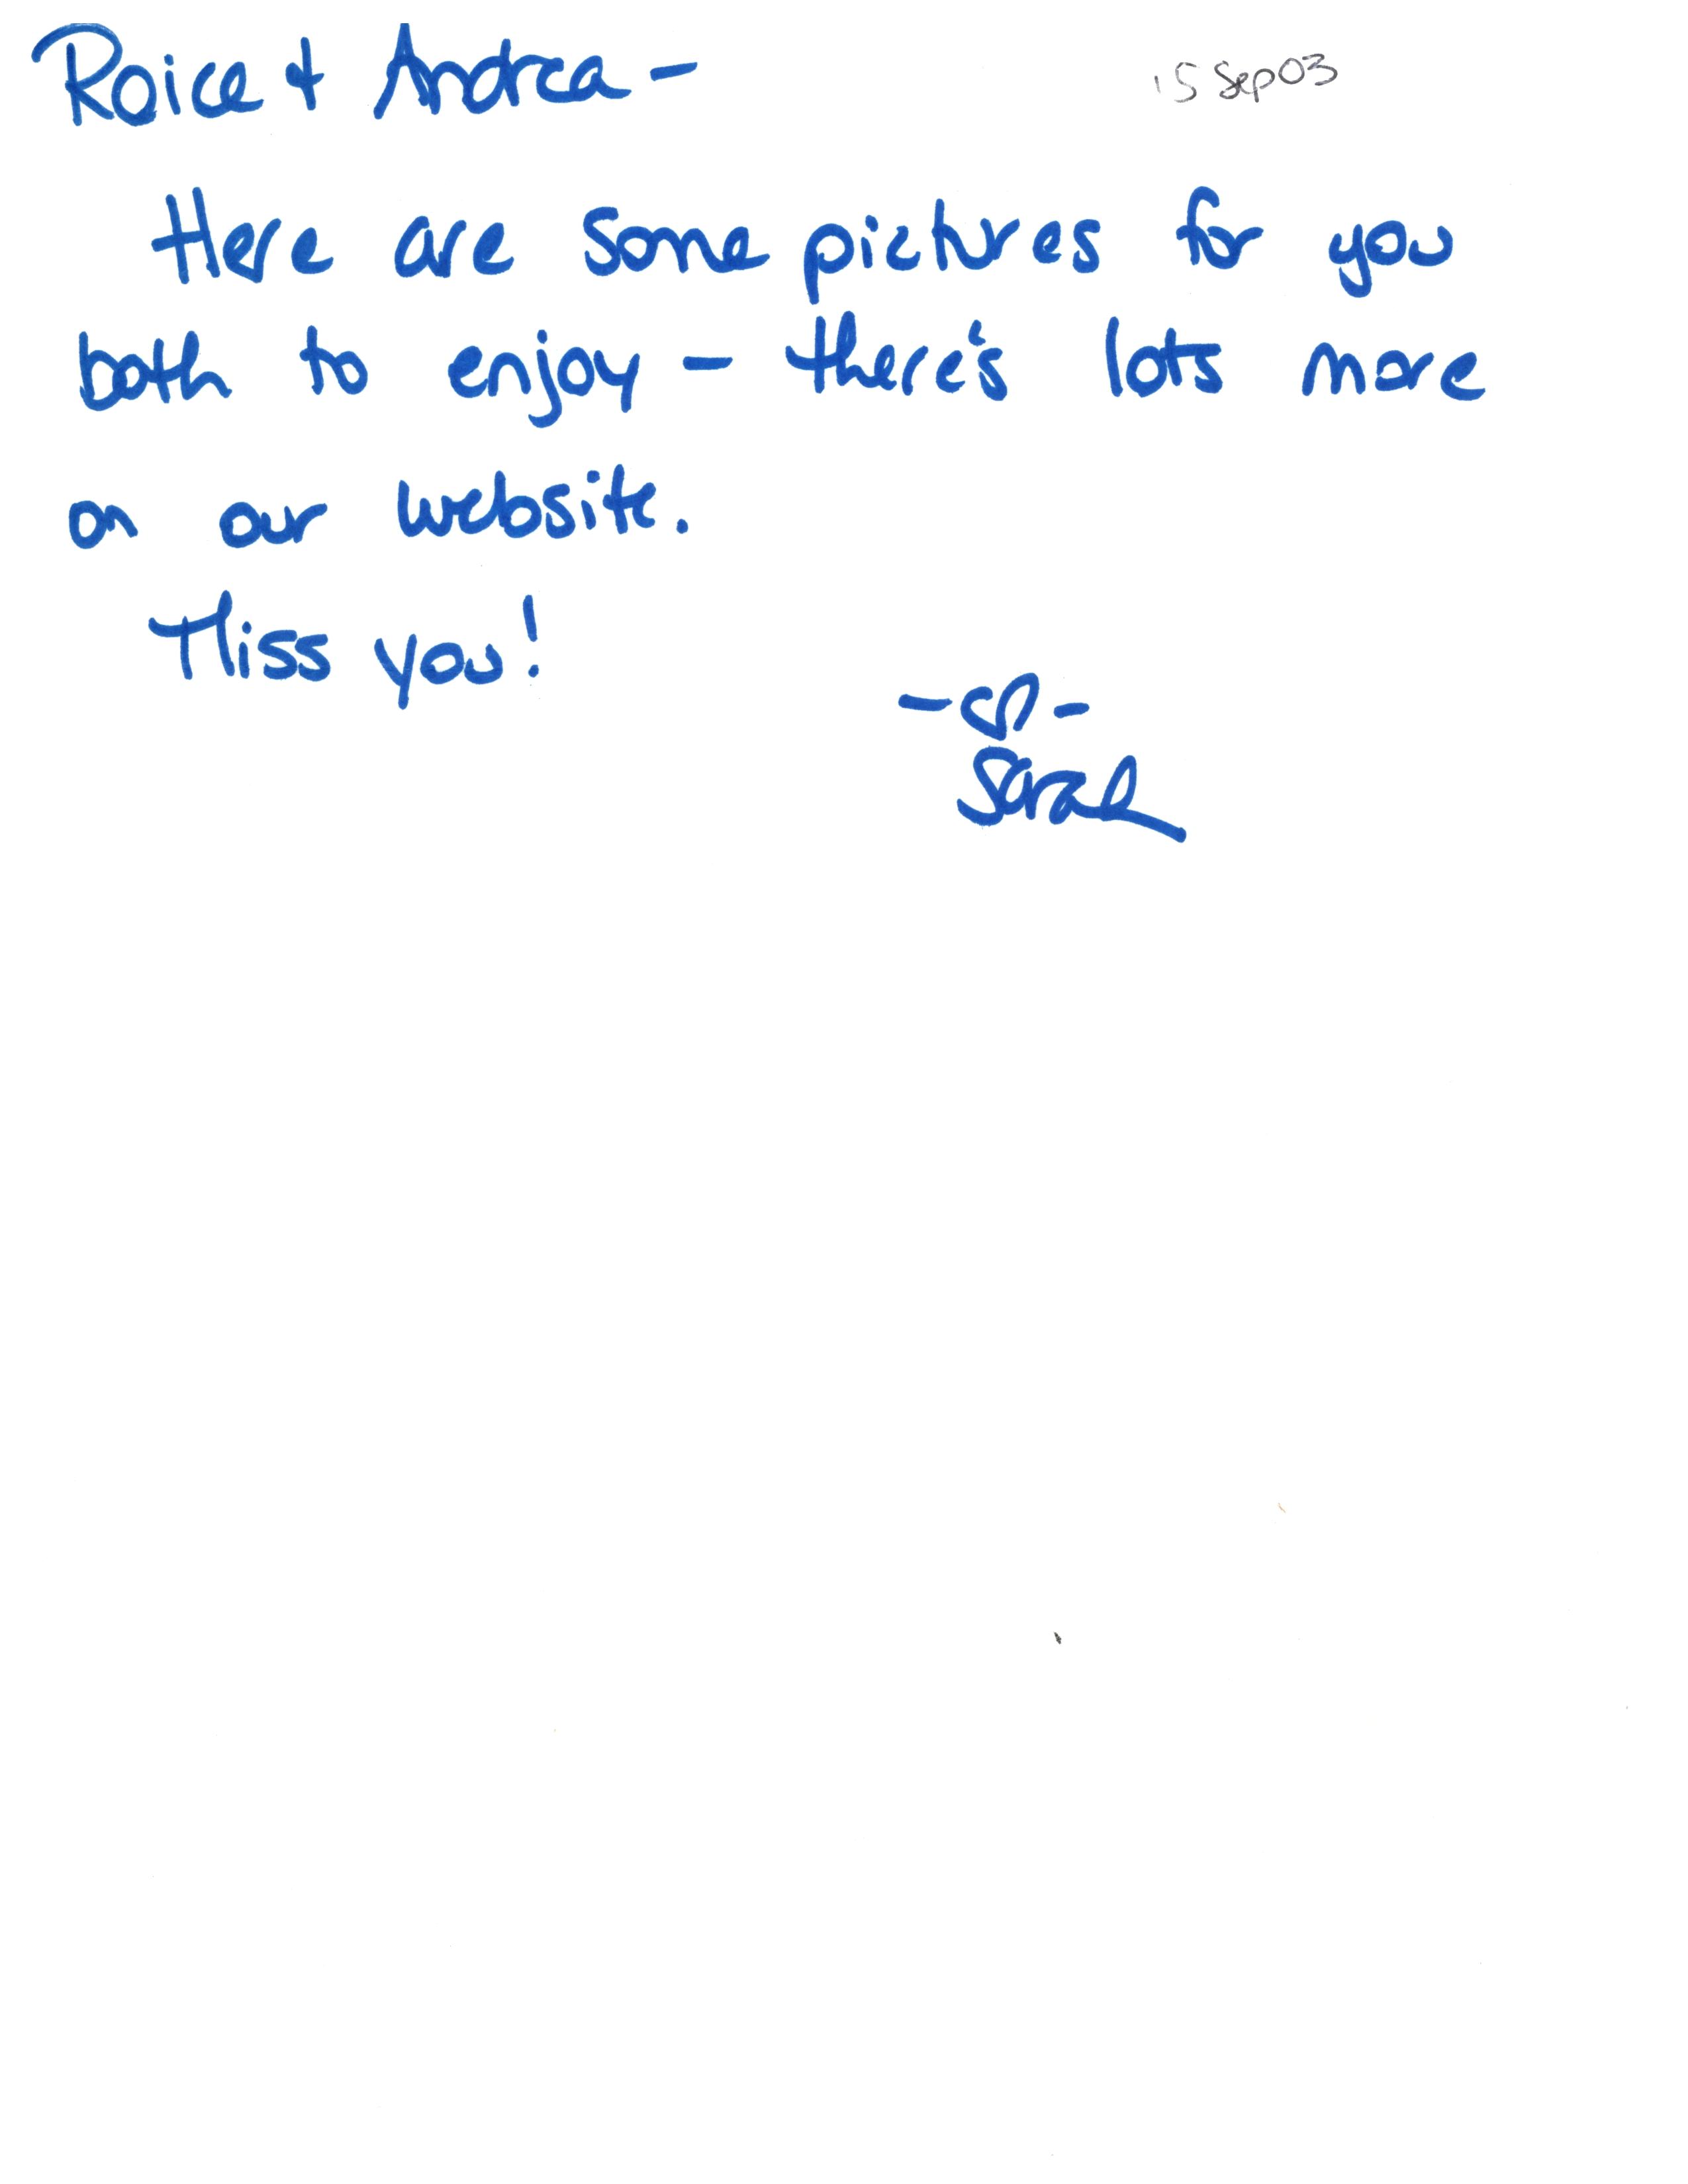 Roice & Andrea -
15 Sep 03
Here are some pictures for you
both to enjoy - there's lots more
on our website.
Miss you!
- ♡ -
Sarah